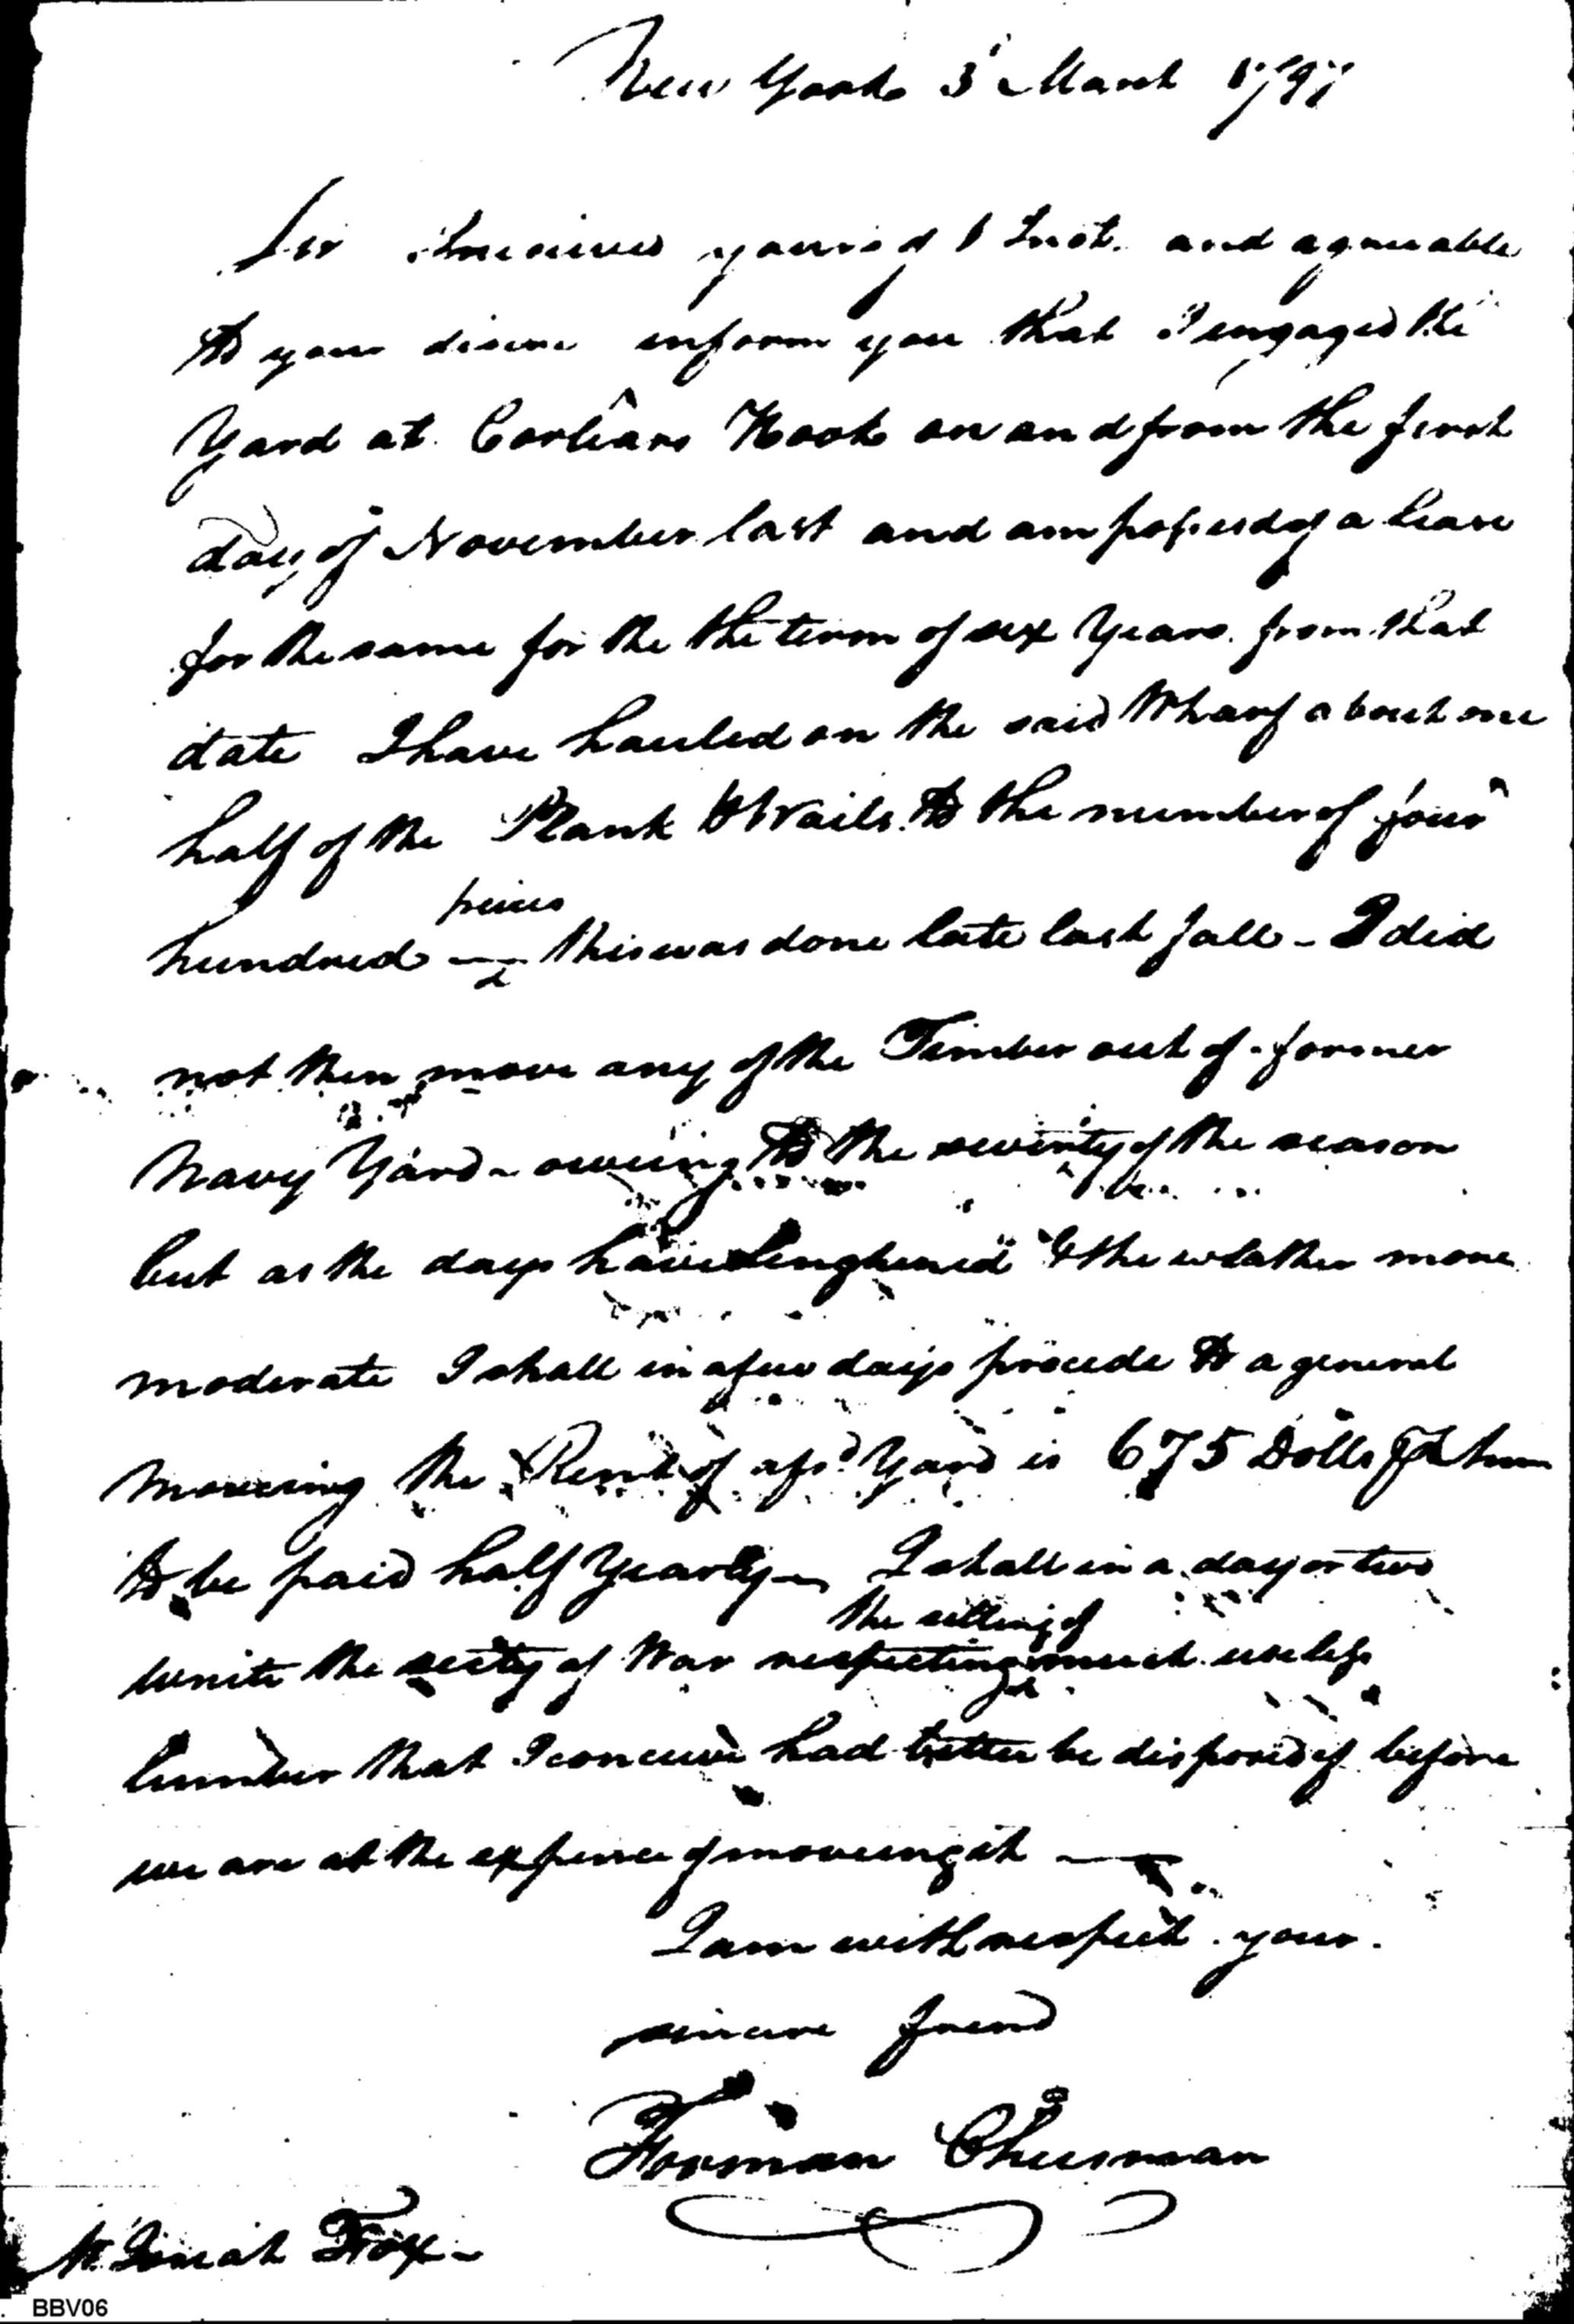 New York 3 March 1797
Sir I received yours of 1 Inst. and agreeable
to your desire inform you that I engaged the
Yard at Corlears Hook on and from the first
day of November last and am possessd of a lease
for the same for the the term of six Years from that
date I have hauled on the said Wharf about one
half of the Plank & Wails to the number of four
peices
hundred — this was done late last fall - I did
not then move any of the Timber out of former
Navy Yard - oweing to the severity of the season
but as the days have lenghened & the weather more
moderate I shall in a few days procede to a general
moveing the Rent of afsd. Yard is 675 Dolls
to be paid half Yearly - I shall in a day or two
the selling of
write the secty of War respecting much useless
lumber that I conceive had better be disposed of before
we are at the expence of moveing it —
I am with respect your
sincere friend
Forman Cheesman
Mr. Josiah Fox -
BBV06